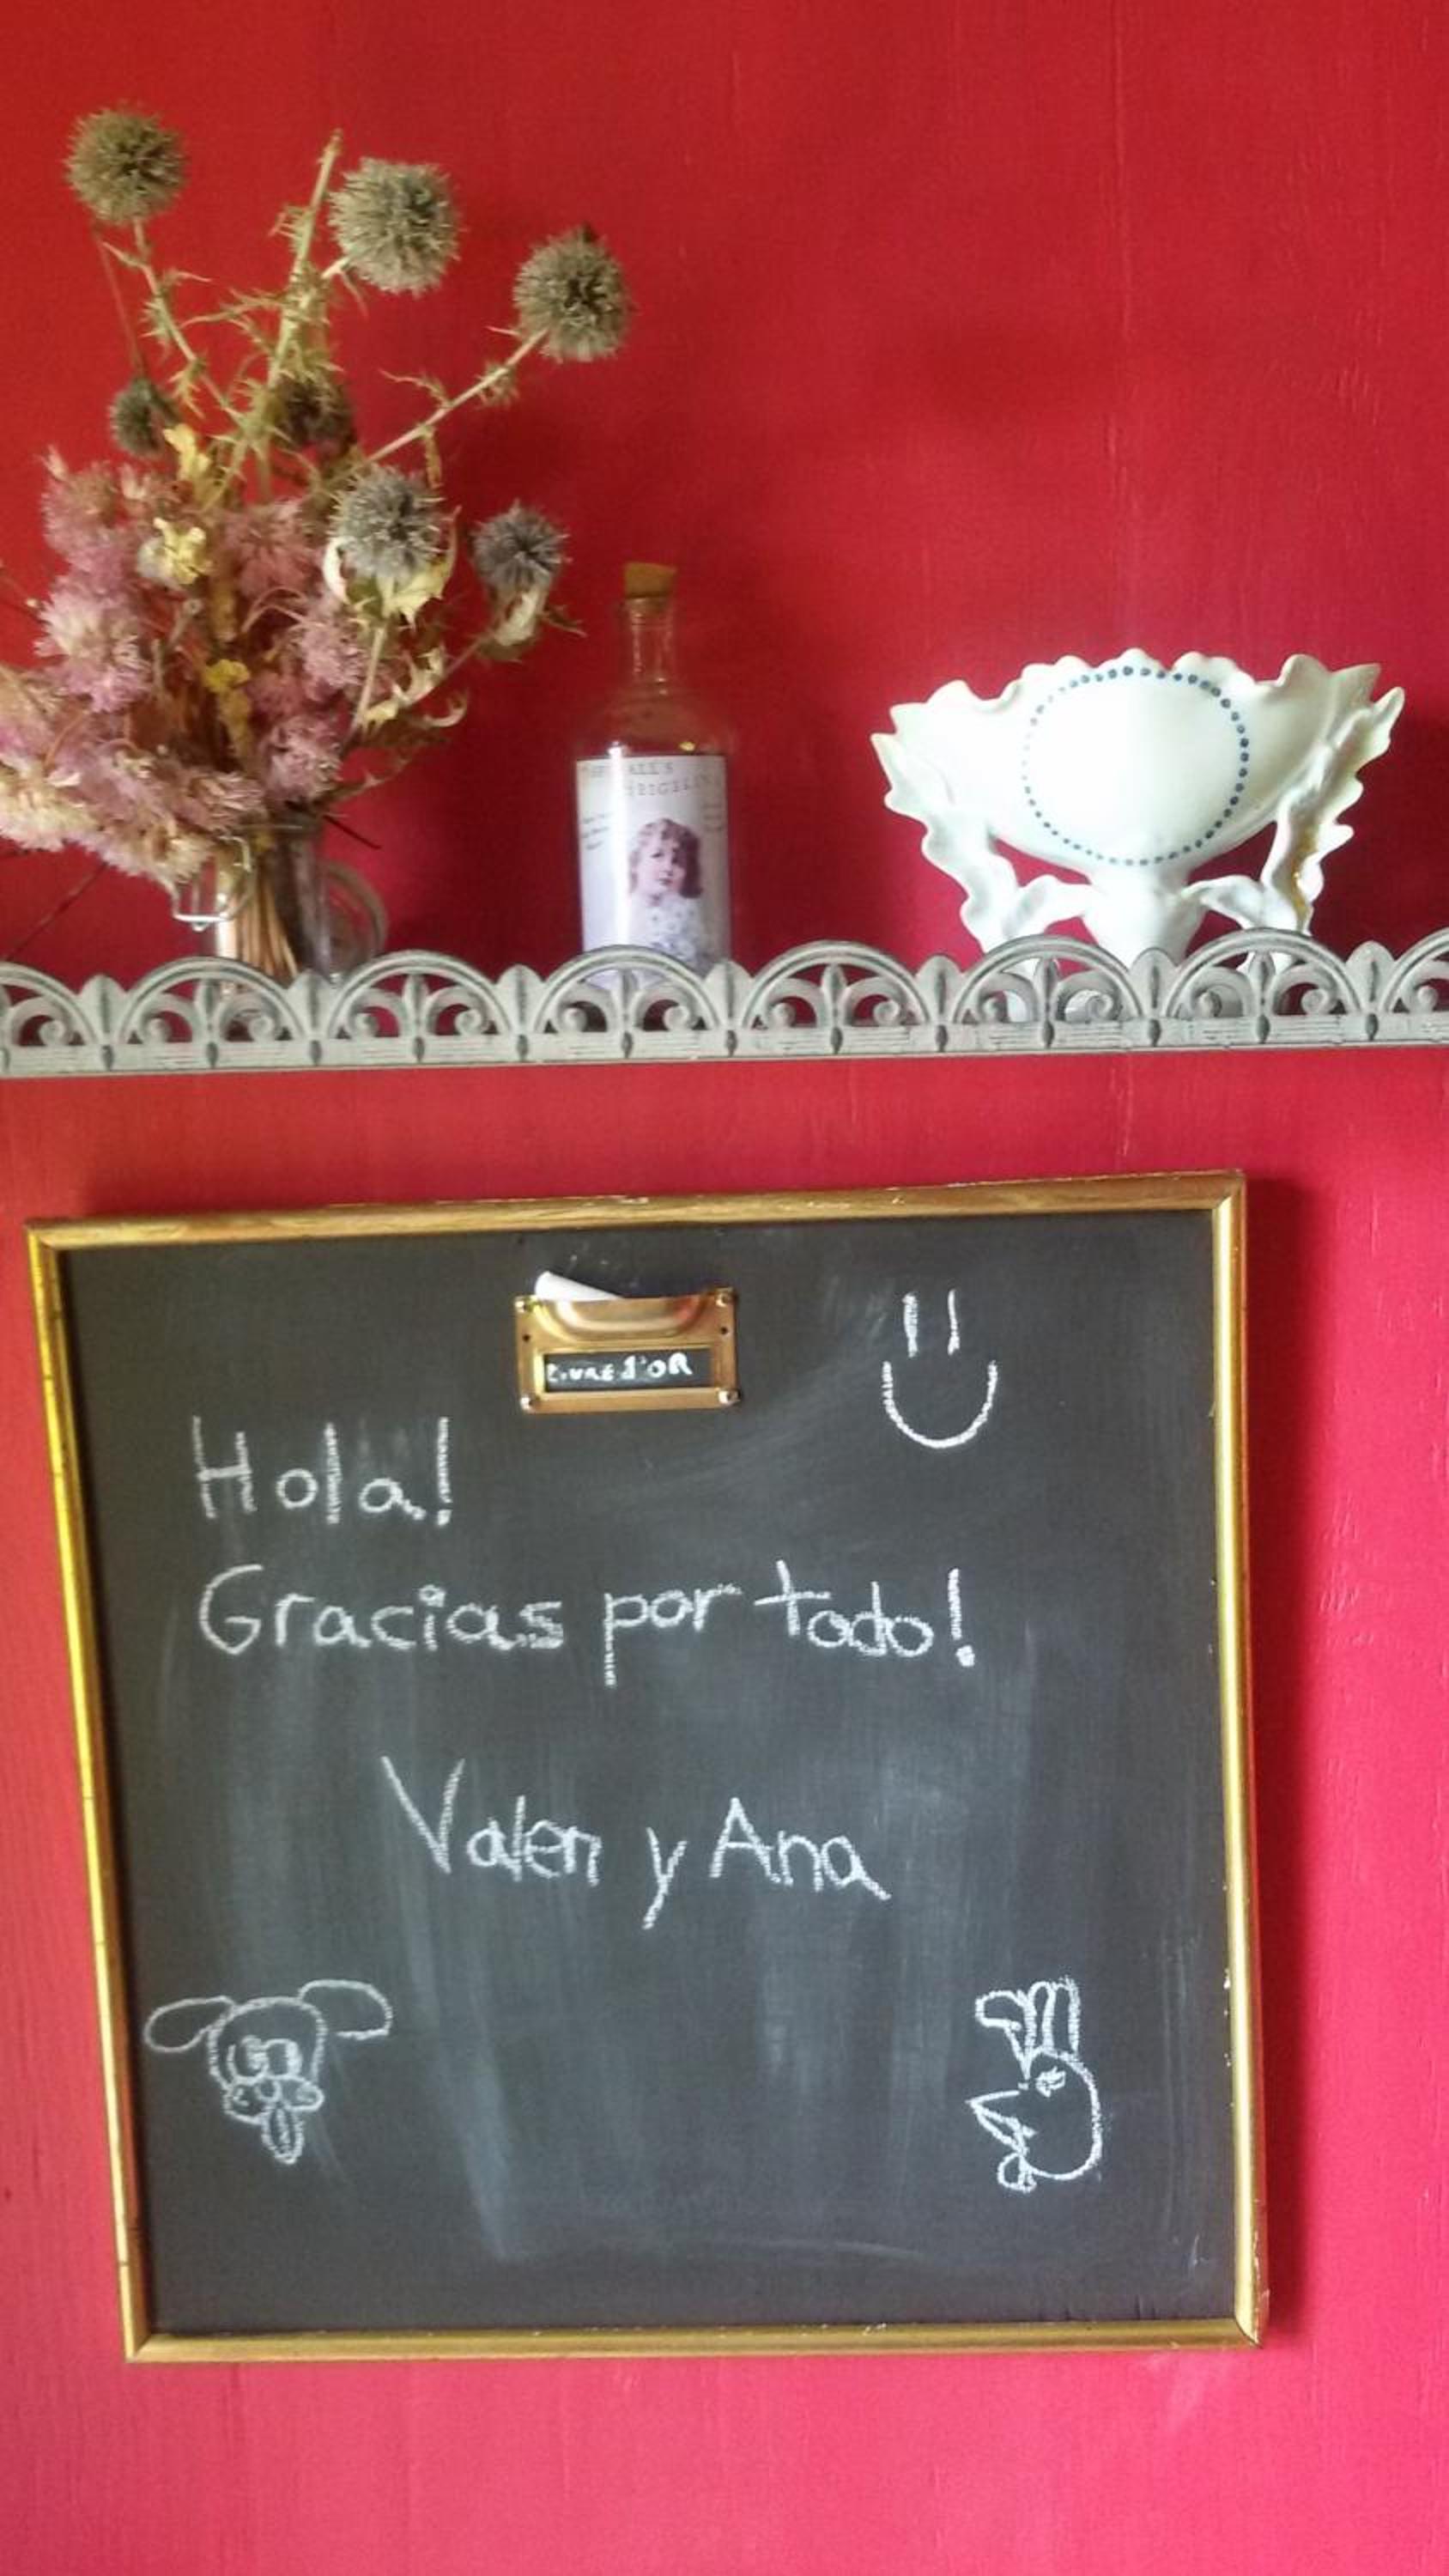 LIVRE d'OR
Hola!
Gracias por todo!
Valen y Ana